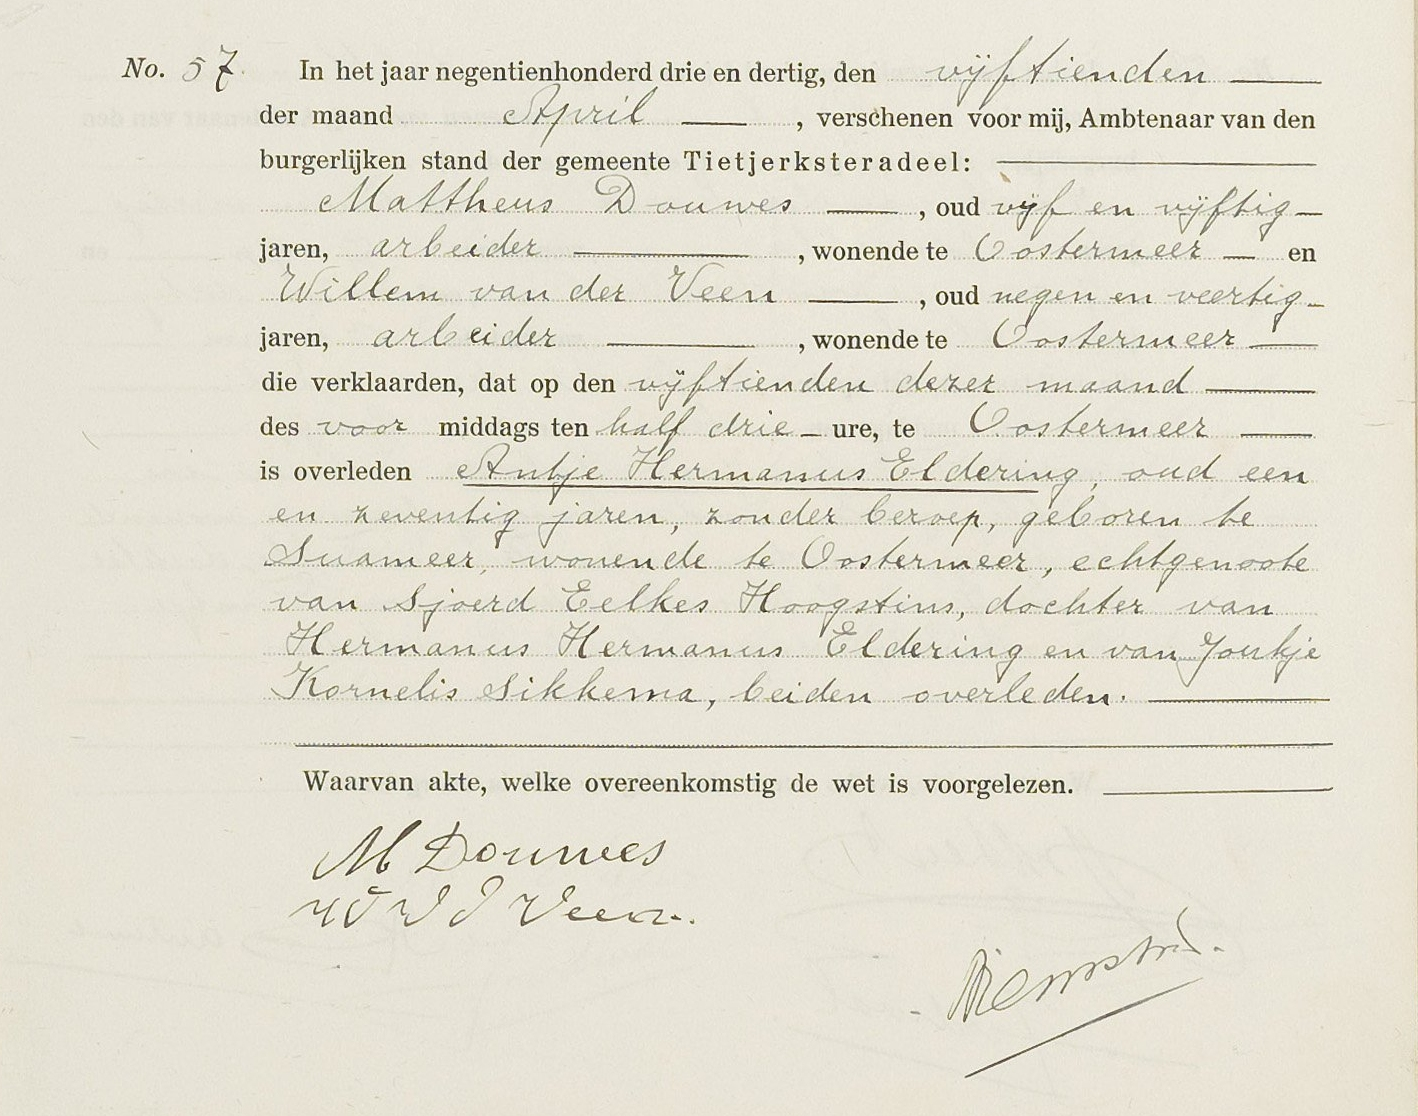 No. 57. In het jaar negentienhonderd drie en dertig, den vijftienden
der maand April, verschenen voor mij, Ambtenaar van den
burgerlijken stand der gemeente Tietjerksteradeel:
Mattheus Douwes, oud vijf en vijftig
jaren, arbeider, wonende te Oostermeer en
Willem van der Veen, oud negen en veertig
jaren, arbeider, wonende te Oostermeer
die verklaarden, dat op den vijftienden dezer maand
des voor middags ten half drie ure, te Oostermeer
is overleden Antje Hermanus Eldering, oud een
en zeventig jaren, zonder beroep, geboren te
Suameer, wonende te Oostermeer, echtgenoote
van Sjoerd Eelkes Hoogstins, dochter van
Hermanus Hermanus Eldering en van Joukje
Kornelis Sikkema, beiden overleden.
Waarvan akte, welke overeenkomstig de wet is voorgelezen.
M Douwes
W v d Veen.